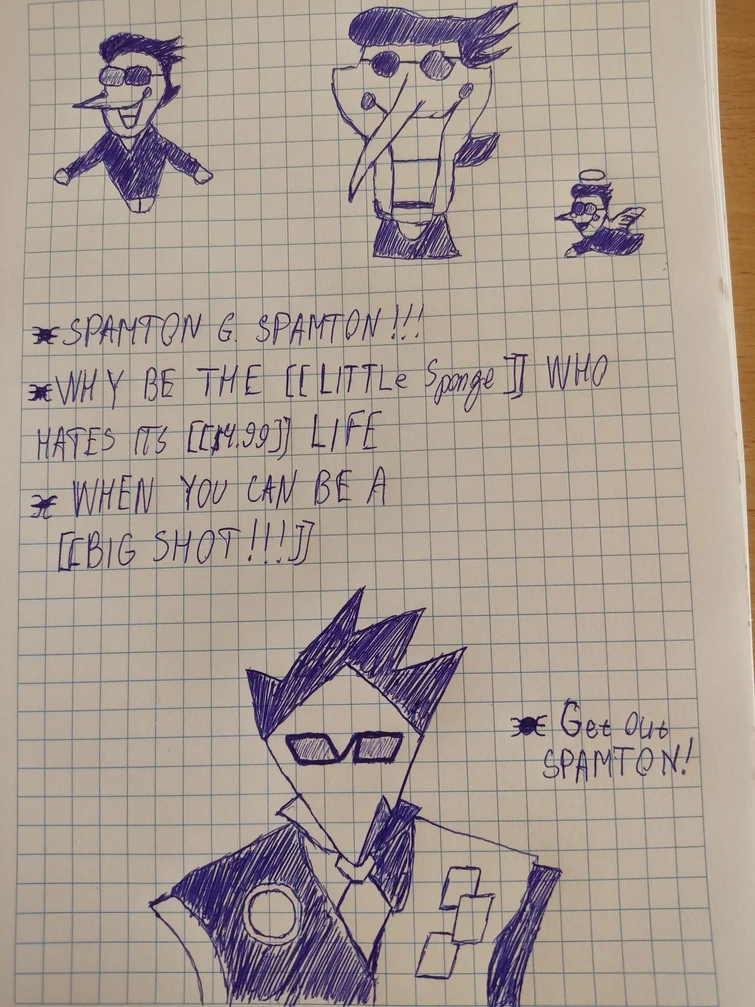 * SPAMTON G. SPAMTON!!!
* WHY BE THE [[LITTLe Sponge]] WHO
HATES ITS [[$4.99]] LIFE
* WHEN YOU CAN BE A
[[BIG SHOT!!!]]
* Get Out
SPAMTON!